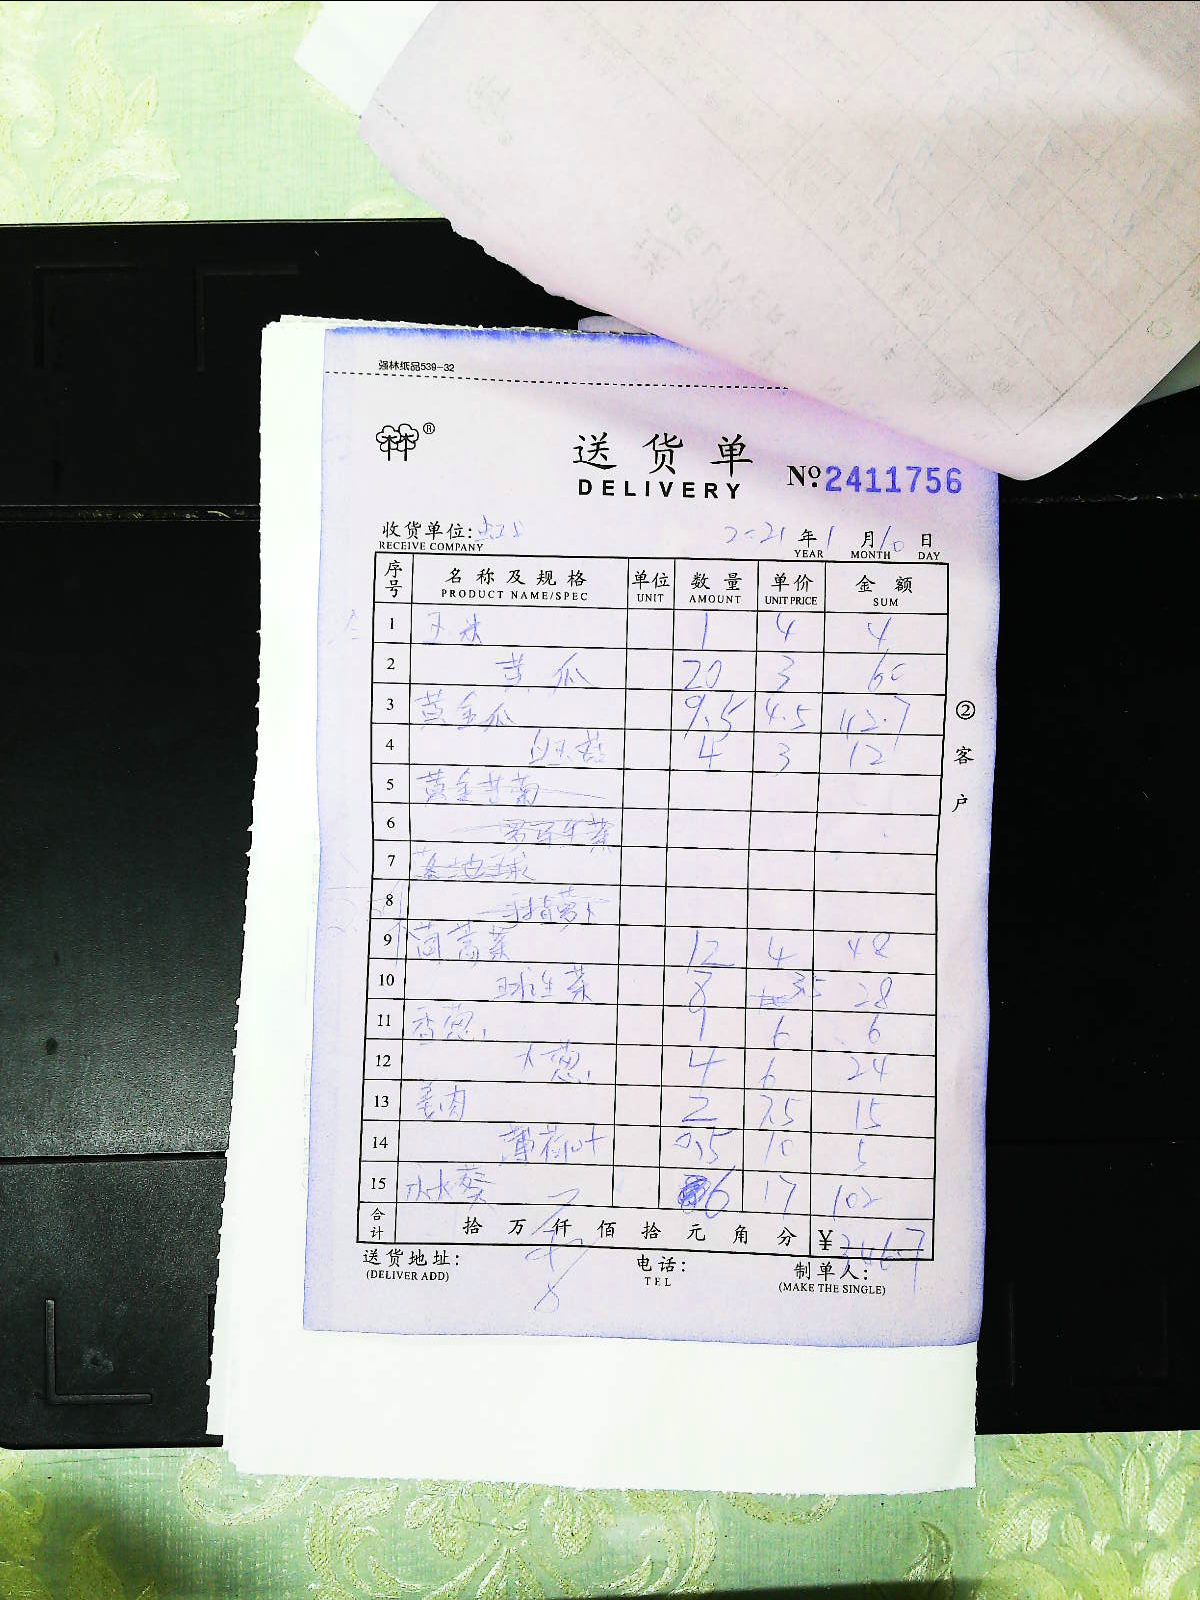 强林纸品539-32
®
送货单
DELIVERY
№ 2411756
收货单位:
RECEIVE COMPANY
2021 年 1 月 10 日
YEAR MONTH DAY
序号 名称及规格 单位 数量 单价 金额
PRODUCT NAME/SPEC UNIT AMOUNT UNIT PRICE SUM
1 玉米 1 4 4
2 黄瓜 20 3 60
3 黄金瓜 9.5 4.5 42.7
4 白玉菇 4 3 12
5 黄金
6
7
8 萝卜
9 茼蒿菜 12 4 48
10 球生菜 8 3.5 28
11 香葱 1 6 6
12 大葱 4 6 24
13 姜肉 2 7.5 15
14 薄荷叶 0.5 10 5
15 6 17 102
合计 拾 万 仟 佰 拾 元 角 分 ¥346.7
送货地址:
(DELIVER ADD)
电话:
TEL
制单人:
(MAKE THE SINGLE)
②客户